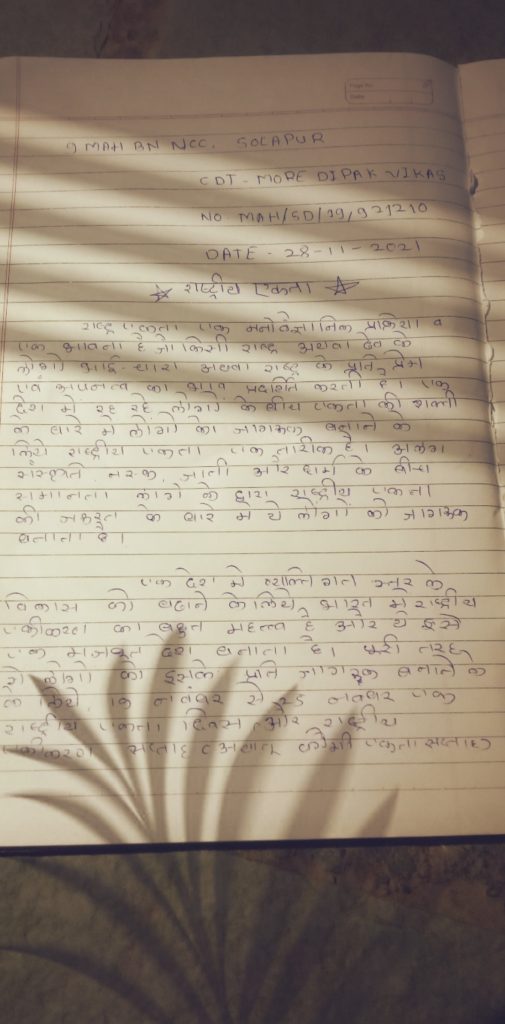 Page No.
Date
9 MAH BN NCC. SOLAPUR
CDT - MORE DIPAK VIKAS
NO. MAH/SD/19/921210
DATE - 28-11-2021
☆ राष्ट्रीय एकता ☆
राष्ट्र एकता एक मनोवैज्ञानिक प्रक्रिया व
एक भावना है जो किसी राष्ट्र अथवा देश के
लोगो भाई-चारा अथवा राष्ट्र के प्रति प्रेम
एवं अपनत्व का भाव प्रदर्शित करती है। एक
देश में रह रहे लोगों के बीच एकता की शक्ती
के बारे मे लोगो को जागरूक बनाने के
लिये राष्ट्रीय एकता एक तारीक है। अलग
संस्कृती नस्क, जाती और धर्म के बीच
समानता लाने के द्वारा राष्ट्रीय एकता
की जरूरत के बारे मे ये लोगो को जागरूक
बनाता है।
एक देश मे व्यक्तिगत स्तर के
विकास को बढाने के लिये भारत मे राष्ट्रीय
एकीकरण का बहुत महत्त्व है और ये इसे
एक मजबूत देश बनाता है। पूरी तरह
से लोगो को इसके प्रति जागरूक बनाने के
के लिये, नवंबर से नवंबर एक
राष्ट्रीय एकता दिवस और राष्ट्रीय
एकीकरण सप्ताह (अथात कौमी एकता सप्ताह)